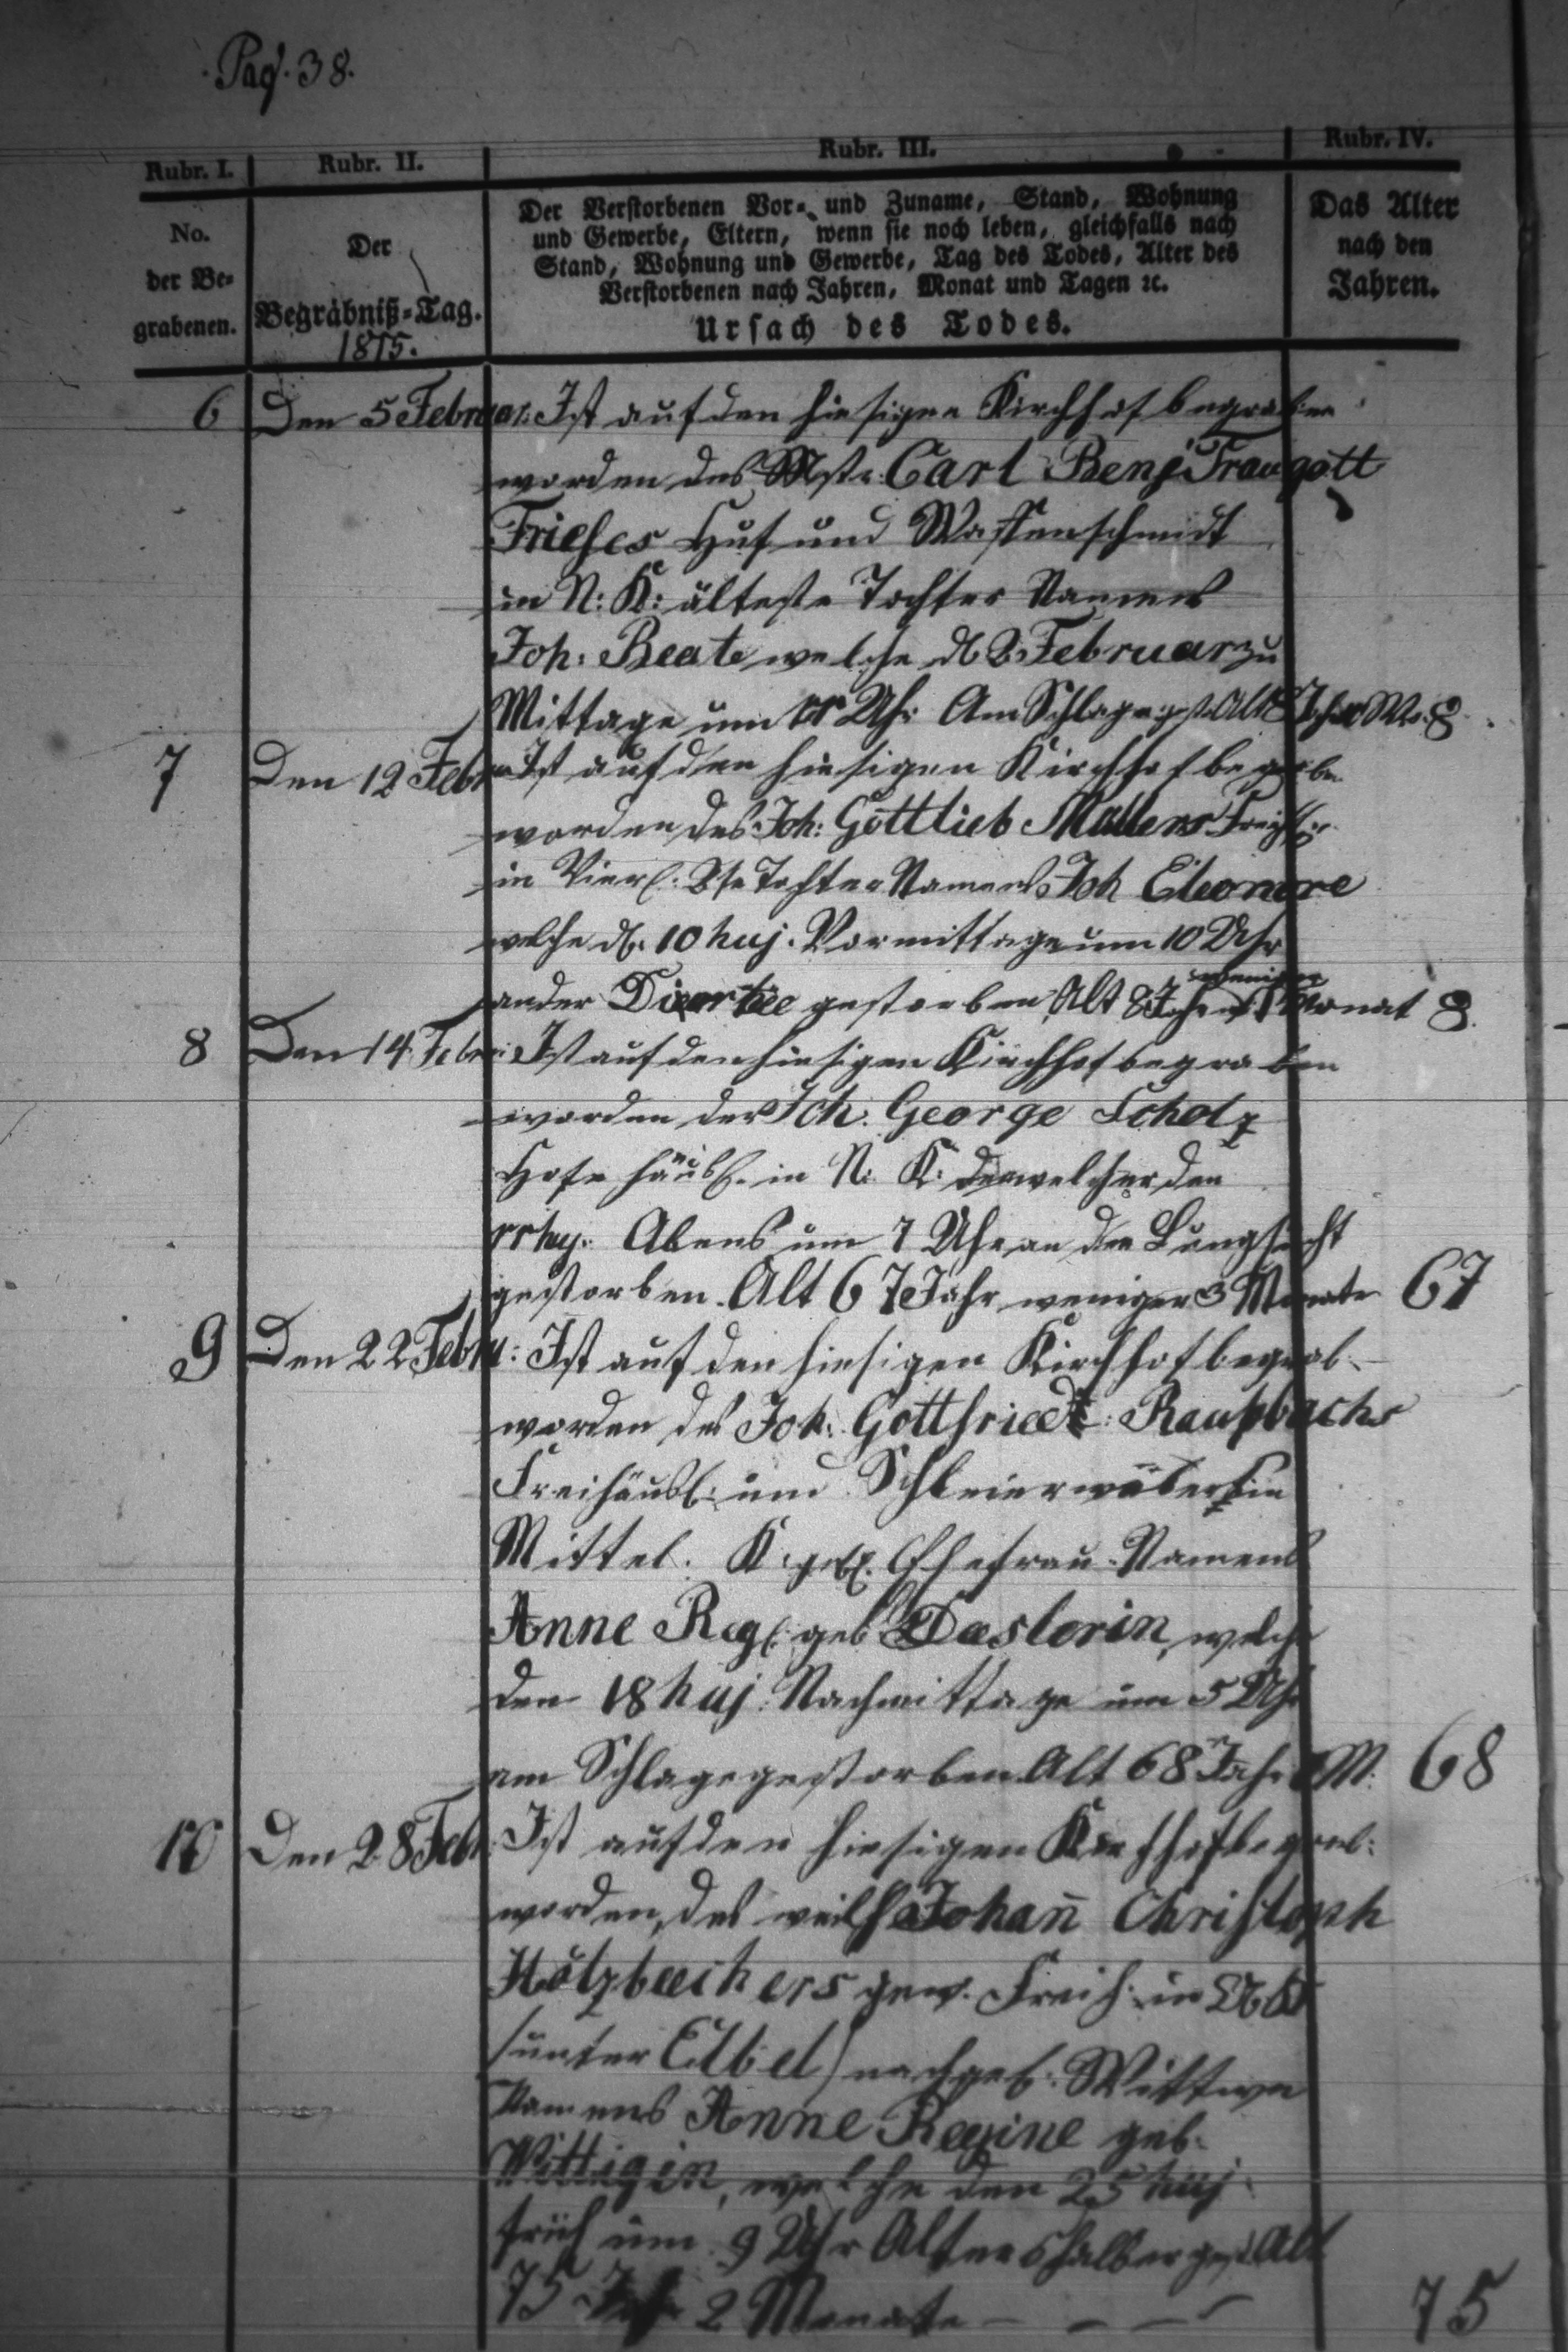 Pag. 38.
Rubr. I. Rubr. II. Rubr. III. Rubr. IV.
No. der Be-grabenen.
Der Begräbniß-Tag.
1815.
Der Verstorbenen Vor- und Zuname, Stand, Wohnung
und Gewerbe, Eltern, wenn sie noch leben, gleichfalls nach
Stand, Wohnung und Gewerbe, Tag des Todes, Alter des
Verstorbenen nach Jahren, Monat und Tagen ꝛc.
Ursach des Todes.
Das Alter
nach den
Jahren.
6 Den 5 Februar: Ist auf den hiesigen Kirchhof begraben
worden des Mstr. Carl Benj Traugott
Frieses Huf und Waffenschmidt
in N: K: älteste Tochter Namens
Joh: Beate welche d Februar zu
Mittage um Uhr Am Schlage gest. Alt 8 Jahr 8
7 Den 12 Febr Ist auf den hiesigen Kirchhof begrabe
worden des Joh: Gottlieb
in Tochter Namens Joh Eleonore
welche d. 10 huj. Vormittage um 10 Uhr
an der gestorben Alt 8 Jahr weniger 1 Monat 8
8 Den 14 Febr: Ist auf den hiesigen Kirchhof begraben
worden der Joh. George Scholz
Hofe häusl. in N: K: welcher den
11 huj. Abens um 7 Uhr an der Lungsucht
gestorben. Alt 67 Jahr weniger 3 Monate 67
9 Den 22 Febru: Ist auf den hiesigen Kirchhof begrab.
worden des Joh. Gottfried: Raupbachs
Freihäusl: und Schleierwäbers in
Mittel. K: gel. Ehefrau Namens
Anne Reg. geb , welche
den 18 huj. Nachmittage um 5 Uhr
am Schlage gestorben Alt 68 Jahr M: 68
10 Den 28 Febr. Ist auf den hiesigen Kirchhof begrab:
worden, des weil Johan̄ Christoph
Holzbechers gew. Freih. in
(unter Eibel) nachgel: Wittwe
Namens Anne Regine geb.
Wittigin, welche den 25 huj
früh um 9 Uhr Altershalber gest Alt
75 Jahr 2 Monate — — — 75